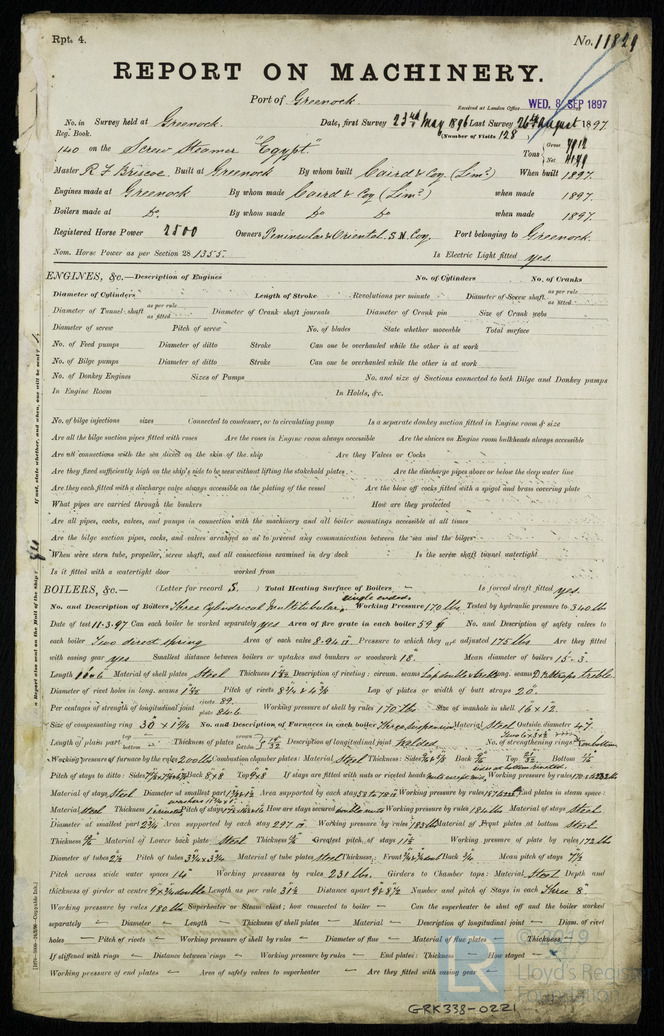 Rpt. 4.
No. 11829
REPORT ON MACHINERY.
Port of Greenock.
Received at London Office WED. 8 SEP 1897
No. in Survey held at Greenock. Date, first Survey 23rd May 1896 Last Survey 26th August 1897
Reg. Book. (Number of Visits 128
140 on the Screw Steamer "Egypt" Tons Gross 7912 Net 4179
Master R F Briscoe Built at Greenock By whom built Caird & Coy (Limd) When built 1897.
Engines made at Greenock By whom made Caird & Coy (Limd) when made 1897.
Boilers made at Do By whom made Do Do when made 1897.
Registered Horse Power 2500 Owners Peninsular & Oriental S N Coy. Port belonging to Greenock.
Nom. Horse Power as per Section 28 1355. Is Electric Light fitted yes.
ENGINES, &c.—Description of Engines No. of Cylinders No. of Cranks
Diameter of Cylinders Length of Stroke Revolutions per minute Diameter of Screw shaft as per rule as fitted
Diameter of Tunnel shaft as per rule as fitted Diameter of Crank shaft journals Diameter of Crank pin Size of Crank webs
Diameter of screw Pitch of screw No. of blades State whether moveable Total surface
No. of Feed pumps Diameter of ditto Stroke Can one be overhauled while the other is at work
No. of Bilge pumps Diameter of ditto Stroke Can one be overhauled while the other is at work
No. of Donkey Engines Sizes of Pumps No. and size of Suctions connected to both Bilge and Donkey pumps
In Engine Room In Holds, &c.
No. of bilge injections sizes Connected to condenser, or to circulating pump Is a separate donkey suction fitted in Engine room & size
Are all the bilge suction pipes fitted with roses Are the roses in Engine room always accessible Are the sluices on Engine room bulkheads always accessible
Are all connections with the sea direct on the skin of the ship Are they Valves or Cocks
Are they fixed sufficiently high on the ship's side to be seen without lifting the stokehold plates Are the discharge pipes above or below the deep water line
Are they each fitted with a discharge valve always accessible on the plating of the vessel Are the blow off cocks fitted with a spigot and brass covering plate
What pipes are carried through the bunkers How are they protected
Are all pipes, cocks, valves, and pumps in connection with the machinery and all boiler mountings accessible at all times
Are the bilge suction pipes, cocks, and valves arranged so as to prevent any communication between the sea and the bilges
When were stern tube, propeller, screw shaft, and all connections examined in dry dock Is the screw shaft tunnel watertight
Is it fitted with a watertight door worked from
BOILERS, &c.— (Letter for record S.) Total Heating Surface of Boilers Is forced draft fitted yes.
No. and Description of Boilers Three Cylindrical Multitubular single ended. Working Pressure 170 lbs Tested by hydraulic pressure to 340 lb
Date of test 11-3-97 Can each boiler be worked separately yes Area of fire grate in each boiler 59 No. and Description of safety valves to
each boiler Two direct spring Area of each valve 8.94 Pressure to which they are adjusted 175 lbs Are they fitted
with easing gear yes Smallest distance between boilers or uptakes and bunkers or woodwork 18" Mean diameter of boilers 15'-3"
Length Material of shell plates Steel Thickness Description of riveting: circum. seams long. seams
Diameter of rivet holes in long. seams Pitch of rivets Lap of plates or width of butt straps 20"
Per centages of strength of longitudinal joint rivets 89. plate 84.6 Working pressure of shell by rules 170 lbs Size of manhole in shell 16 x 12
Size of compensating ring No. and Description of Furnaces in each boiler Three suspension Material steel Outside diameter 47
Length of plain part top bottom Thickness of plates crown bottom Description of longitudinal joint welded No. of strengthening rings
Working pressure of furnace by the rules 200 lbs Combustion chamber plates: Material Steel Thickness: Sides Back Top Bottom
Pitch of stays to ditto: Sides Back 8x8 Top If stays are fitted with nuts or riveted heads Working pressure by rules
Material of stays Steel Diameter at smallest part Area supported by each stay Working pressure by rules End plates in steam space:
Material steel Thickness Pitch of stays How are stays secured double nuts Working pressure by rules 184 lbs Material of stays Steel
Diameter at smallest part Area supported by each stay 297 Working pressure by rules 183 lbs Material of Front plates at bottom Steel
Thickness Material of Lower back plate Steel Thickness Greatest pitch of stays Working pressure of plate by rules 172 lb
Diameter of tubes 2½ Pitch of tubes Material of tube plates steel Thickness: Front Back Mean pitch of stays 7½
Pitch across wide water spaces 14" Working pressures by rules 231 lbs. Girders to Chamber tops: Material Steel Depth and
thickness of girder at centre Length as per rule Distance apart Number and pitch of Stays in each Three 8"
Working pressure by rules 180 lbs Superheater or Steam chest; how connected to boiler — Can the superheater be shut off and the boiler worked
separately — Diameter — Length — Thickness of shell plates — Material — Description of longitudinal joint — Diam. of rivet
holes — Pitch of rivets — Working pressure of shell by rules — Diameter of flue — Material of flue plates — Thickness —
If stiffened with rings — Distance between rings — Working pressure by rules — End plates: Thickness — How stayed —
Working pressure of end plates — Area of safety valves to superheater — Are they fitted with easing gear —
© 2019
LR
Lloyd's Register
Foundation
GRK338-0221